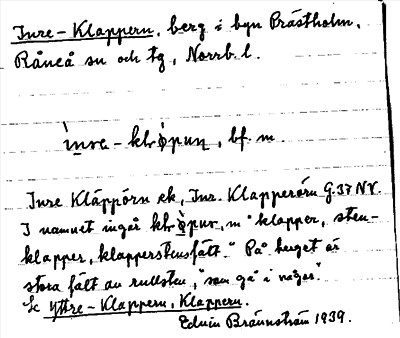 Inre-Klappern, berg i byn Prästholm,
Råneå sn och tg, Norrb. l.
Inre Kläppörn ek, Inr. Klapperörn G.37 NV.
I namnet ingår m "klapper, sten-
klapper, klapperstensfält." På berget är
stora fält av rullsten, "som gå i vågor".
Se Yttre-Klappern, Klappern.
Edvin Brännström 1939.